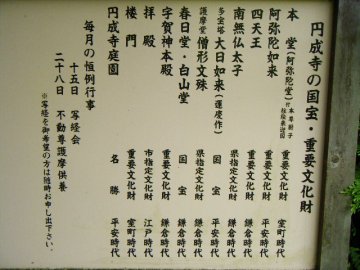 円成寺の国宝・重要文化財
本堂(阿弥陀堂) 重要文化財 室町時代
阿弥陀如来 重要文化財 平安時代
四天王 重要文化財 鎌倉時代
南無仏太子 県指定文化財 鎌倉時代
多宝塔 大日如来(運慶作) 国宝 平安時代
護摩堂 僧形文殊 県指定文化財 鎌倉時代
春日堂・白山堂 国宝 鎌倉時代
宇賀神本殿 重要文化財 鎌倉時代
拝殿 市指定文化財 江戸時代
楼門 重要文化財 室町時代
円成寺庭園 名勝 平安時代
毎月の恒例行事
十五日 写経会
二十八日 不動尊護摩供養
※写経を御希望の方は随時お申し出下さい。